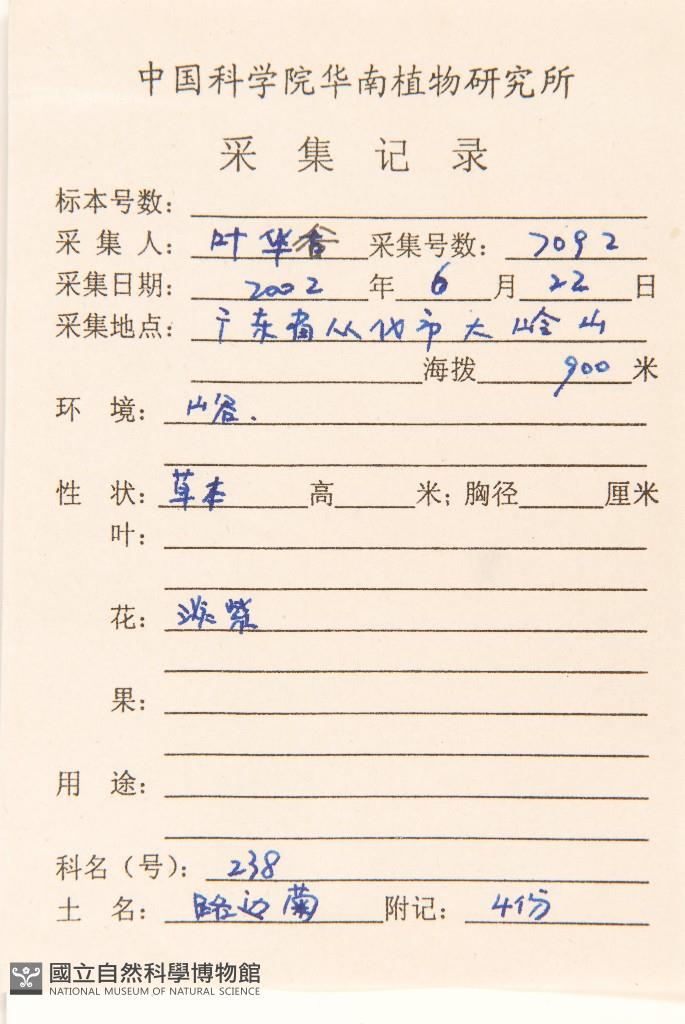 中国科学院华南植物研究所
采集记录
标本号数：
采集人：叶华谷 采集号数：7092
采集日期：2002年6月22日
采集地点：广东省从化市大岭山
海拨900米
环境：山谷.
性状：草本 高 米；胸径 厘米
叶：
花：淡紫
果：
用途：
科名（号）：238
土名：路边菊 附记：4份
國立自然科學博物館
NATIONAL MUSEUM OF NATURAL SCIENCE